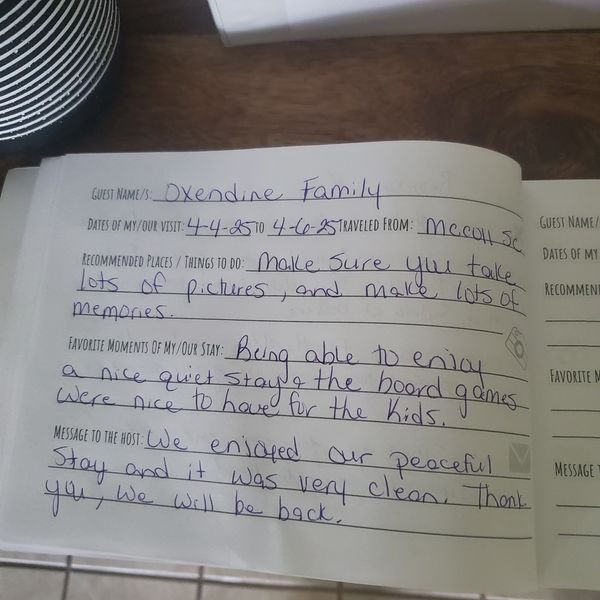 GUEST NAME/S: Oxendine Family
DATES OF MY/OUR VISIT: 4-4-25 TO 4-6-25 TRAVELED FROM: Mccoll Sc
RECOMMENDED PLACES / THINGS TO DO: Make sure you take
lots of pictures, and make lots of
memories.
FAVORITE MOMENTS OF MY/OUR STAY: Being able to enjoy
a nice quiet stay & the board games
were nice to have for the kids.
MESSAGE TO THE HOST: We enjoyed our peaceful
stay and it was very clean. Thank
you, we will be back.
GUEST NAME/
DATES OF MY
RECOMMEN
FAVORITE M
MESSAGE T